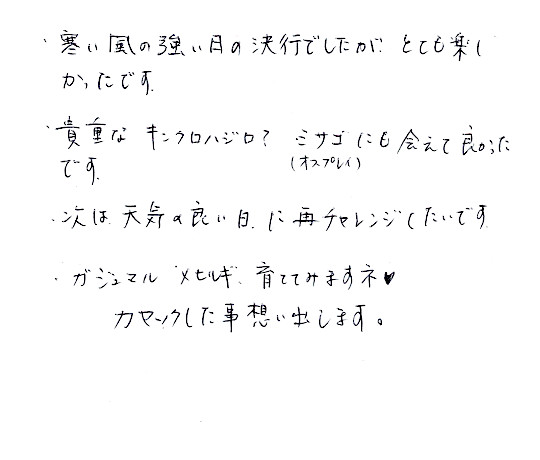 ・寒い風の強い日の決行でしたが とても楽し
かったです。
・貴重な キンクロハジロ？ ミサゴにも会えて良かった
(オスプレイ)
です。
・次は 天気の良い日に再チャレンジしたいです
・ガジュマル メヒルギ、育ててみますネ♥
カヤックした事想い出します。